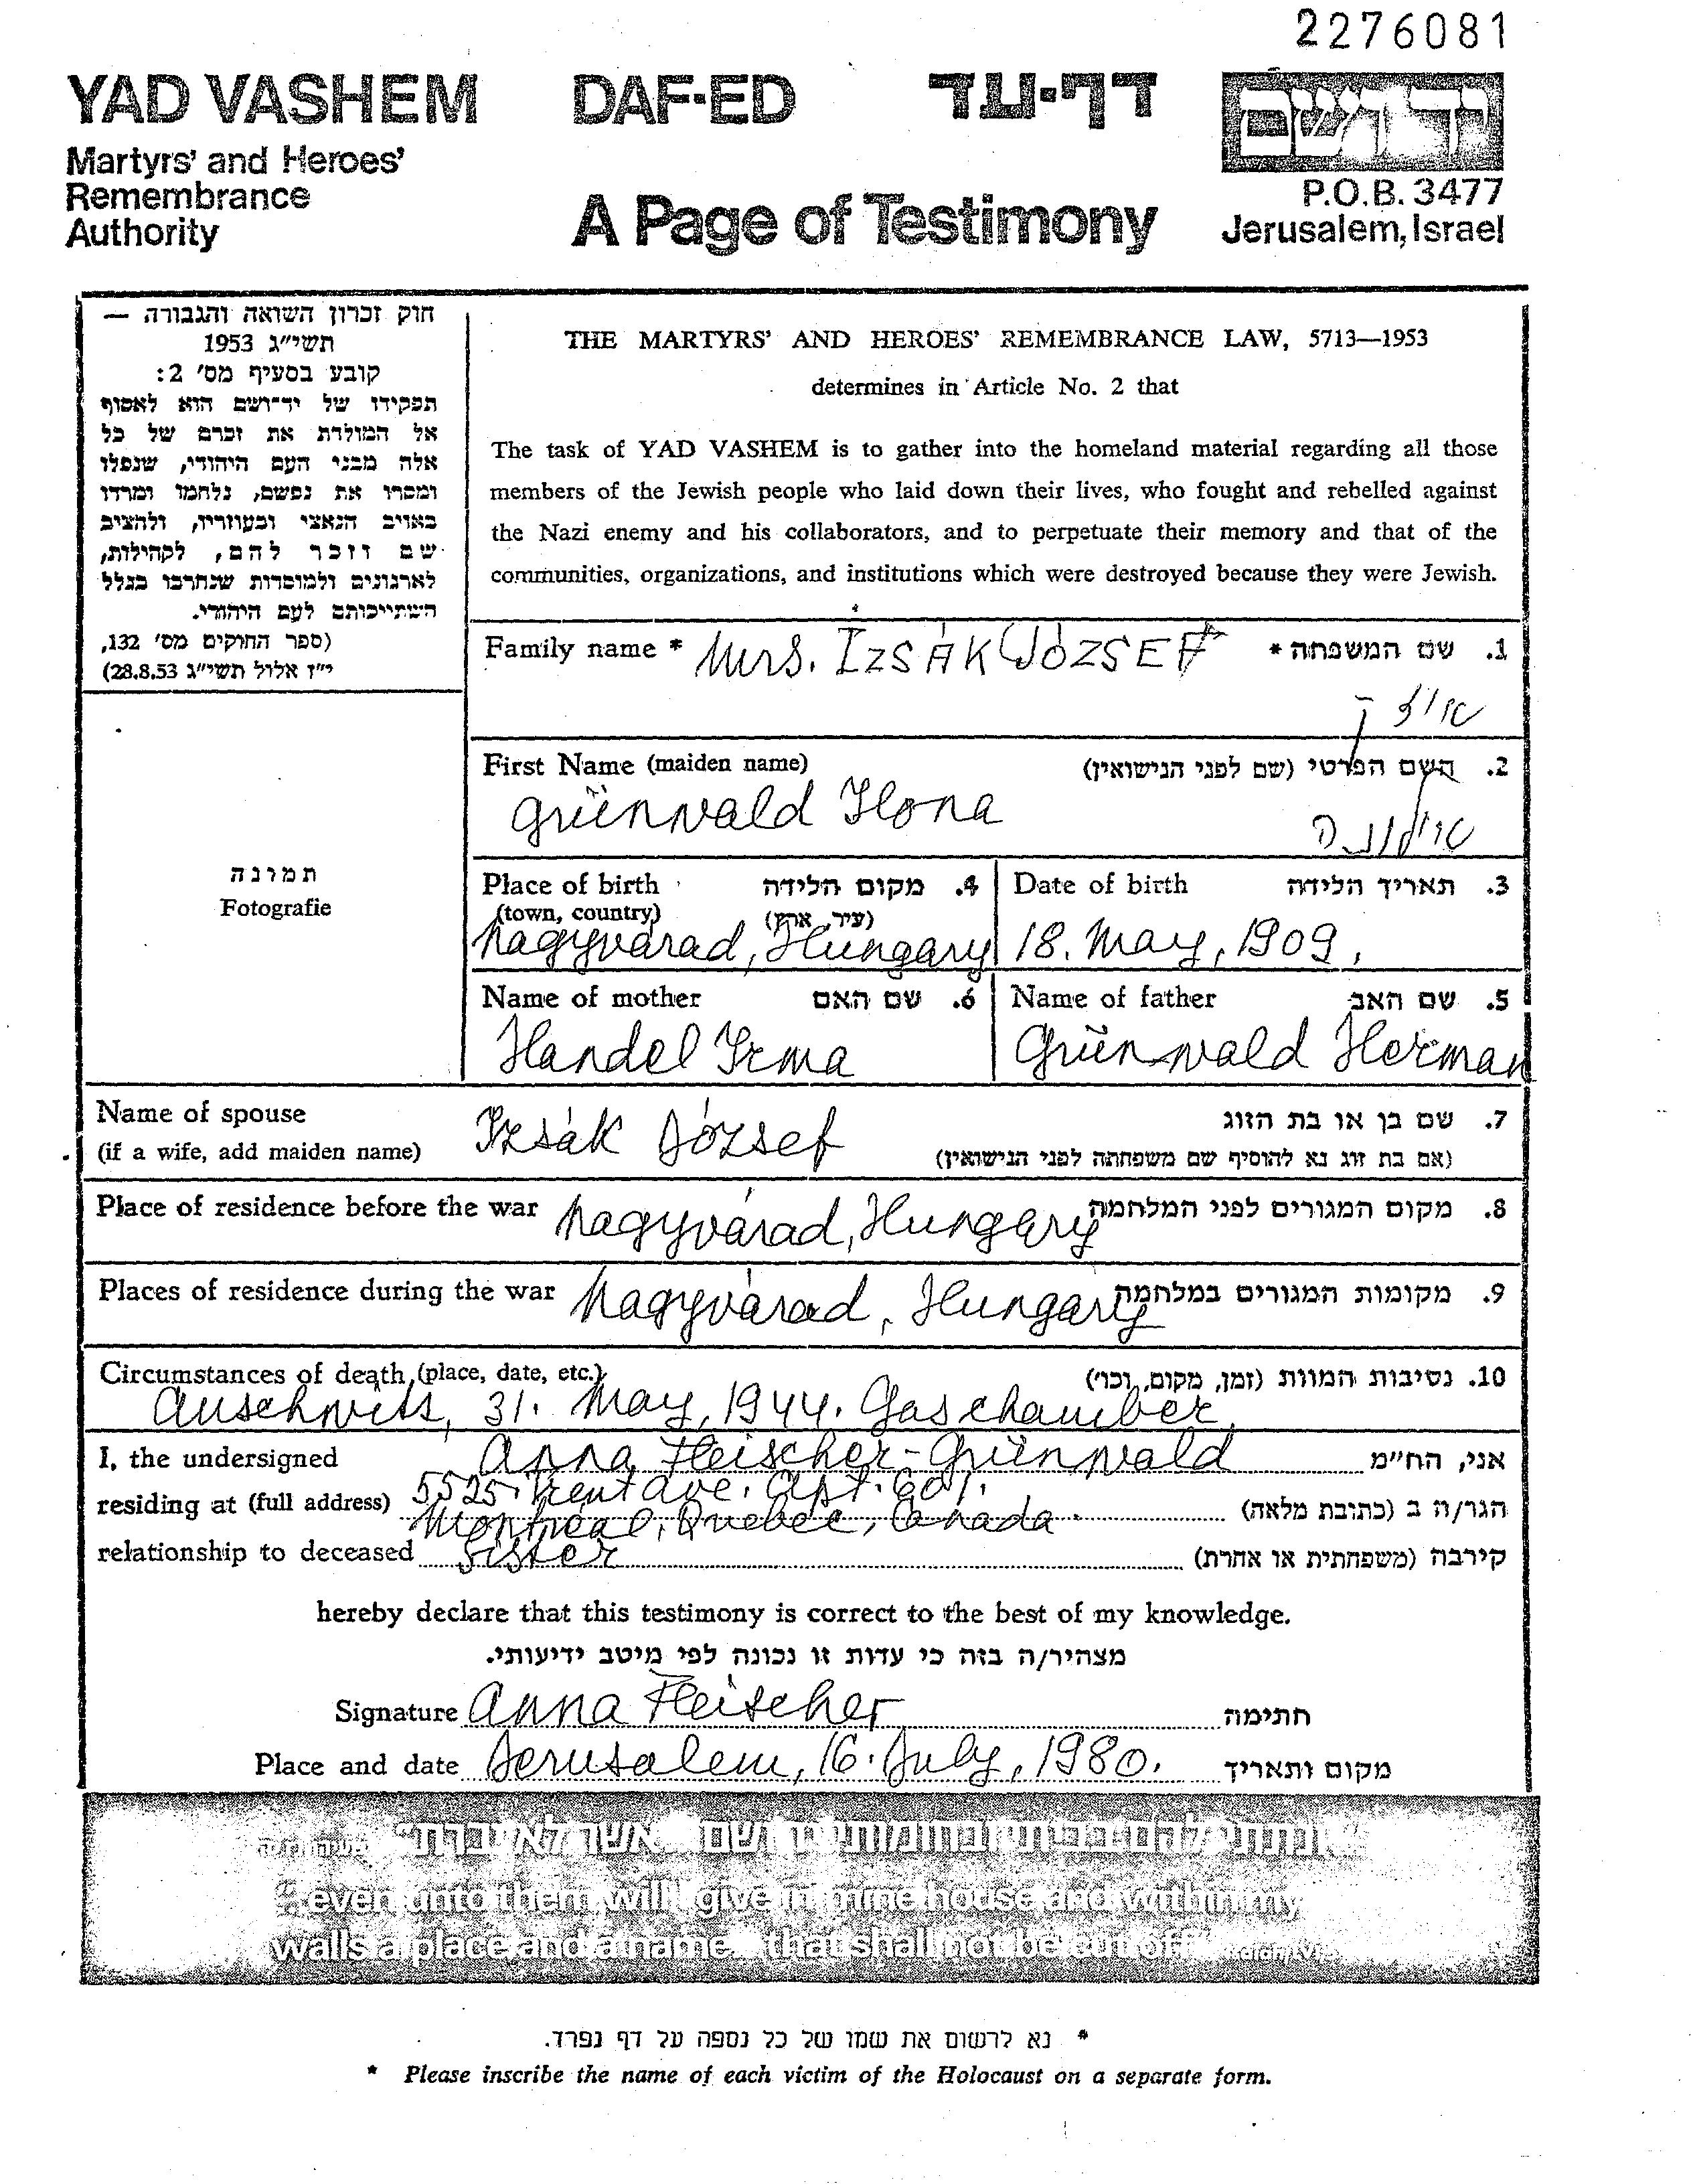 2276081
YAD VASHEM DAF-ED דף-עד יד ושם
Martyrs' and Heroes'
Remembrance
Authority
A Page of Testimony
P.O.B. 3477
Jerusalem, Israel
חוק זכרון השואה והגבורה —
תשי״ג 1953
קובע בסעיף מס׳ 2:
תפקידו של יד־ושם הוא לאסוף
אל המולדת את זכרם של כל
אלה מבני העם היהודי, שנפלו
ומסרו את נפשם, נלחמו ומרדו
באויב הנאצי ובעוזריו, ולהציב
שם וזכר להם, לקהילות,
לארגונים ולמוסדות שנחרבו בגלל
השתייכותם לעם היהודי.
(ספר החוקים מס׳ 132,
י״ז אלול תשי״ג 28.8.53)
תמונה
Fotografie
THE MARTYRS' AND HEROES' REMEMBRANCE LAW, 5713—1953
determines in Article No. 2 that
The task of YAD VASHEM is to gather into the homeland material regarding all those
members of the Jewish people who laid down their lives, who fought and rebelled against
the Nazi enemy and his collaborators, and to perpetuate their memory and that of the
communities, organizations, and institutions which were destroyed because they were Jewish.
Family name * Mrs. IZSÁK JÓZSEF 1. שם המשפחה *
First Name (maiden name) 2. השם הפרטי (שם לפני הנישואין)
Grünwald Ilona אילונה
Place of birth 4. מקום הלידה
(town, country) (עיר, ארץ)
Nagyvárad, Hungary
Date of birth 3. תאריך הלידה
18. May, 1909.
Name of mother 6. שם האם
Handel Irma
Name of father 5. שם האב
Grünwald Herman
Name of spouse Izsák József 7. שם בן או בת הזוג
(if a wife, add maiden name) (אם בת זוג נא להוסיף שם משפחתה לפני הנישואין)
Place of residence before the war Nagyvárad, Hungary 8. מקום המגורים לפני המלחמה
Places of residence during the war Nagyvárad, Hungary 9. מקומות המגורים במלחמה
Circumstances of death (place, date, etc.) 10. נסיבות המוות (זמן, מקום, וכו׳)
Auschwitz, 31. May, 1944. Gaschamber
I, the undersigned Anna Fleischer-Grünwald אני, הח״מ
5525 Trent ave. apt. 601.
residing at (full address) Montreal, Quebec, Canada. הגר/ה ב (כתובת מלאה)
relationship to deceased Sister קירבה (משפחתית או אחרת)
hereby declare that this testimony is correct to the best of my knowledge.
מצהיר/ה בזה כי עדות זו נכונה לפי מיטב ידיעותי.
Signature Anna Fleischer חתימה
Place and date Jerusalem, 16. July, 1980. מקום ותאריך
"ונתתי להם בביתי ובחומותי יד ושם... אשר לא יכרת"
"...even unto them will I give in mine house and within my
walls a place and a name... that shall not be cut off"
* נא לרשום את שמו של כל נספה על דף נפרד.
* Please inscribe the name of each victim of the Holocaust on a separate form.